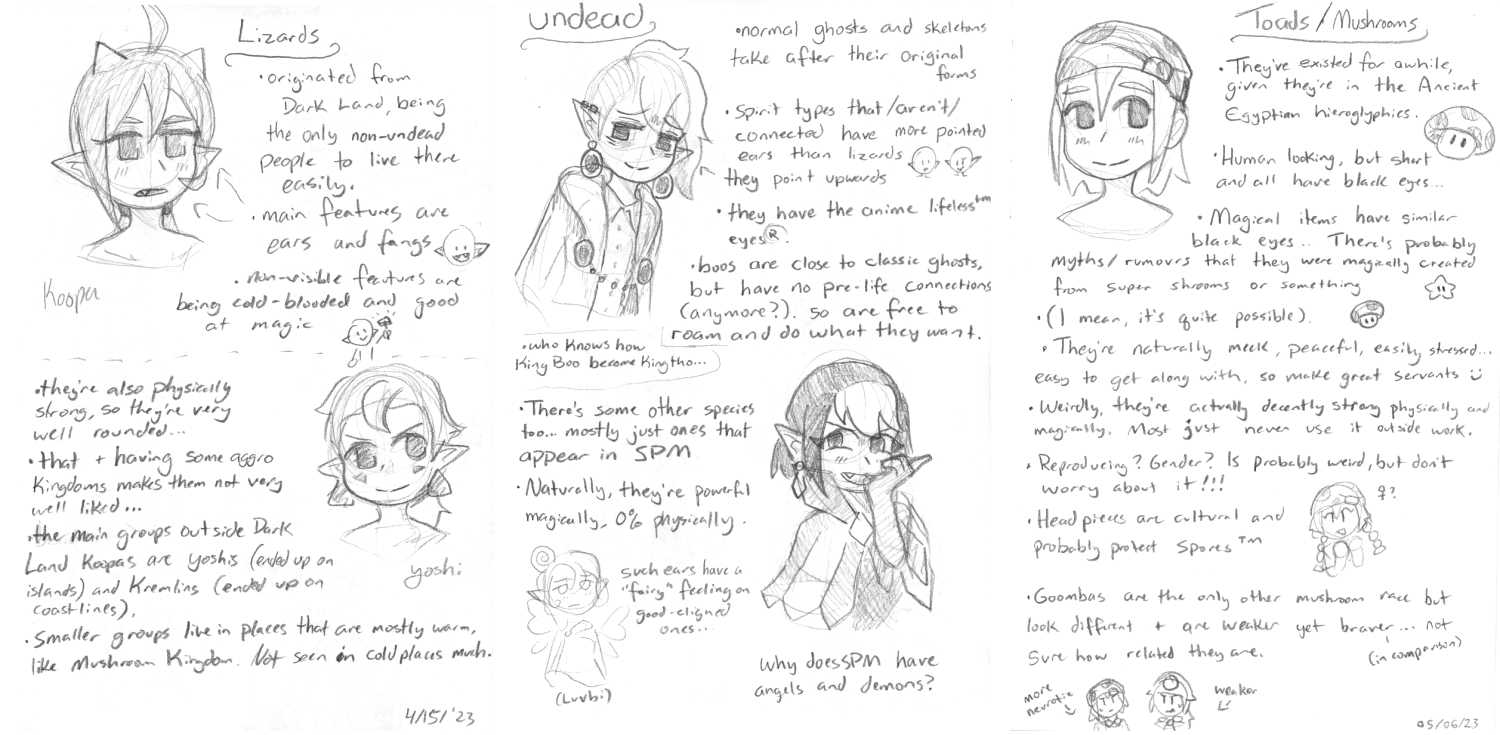 Lizards
• originated from
Dark Land, being
the only non-undead
people to live there
easily.
• main features are
ears and fangs
• non-visible features are
being cold-blooded and good
at magic
Koopa
• they're also physically
strong, so they're very
well rounded...
• that + having some aggro
Kingdoms makes them not very
well liked...
• the main groups outside Dark
Land Koopas are yoshis (ended up on
islands) and Kremlins (ended up on
coastlines).
yoshi
• Smaller groups live in places that are mostly warm,
like Mushroom Kingdom. Not seen in cold places much.
4/15/'23
undead
• normal ghosts and skeletons
take after their original
forms
• Spirit types that /aren't/
connected have more pointed
ears than lizards
they point upwards
• they have the anime lifeless™
eyes®.
• boos are close to classic ghosts,
but have no pre-life connections
(anymore?). so are free to
roam and do what they want.
• who knows how
King Boo become King tho...
• There's some other species
too... mostly just ones that
appear in SPM
• Naturally, they're powerful
magically, 0% physically.
such ears have a
"fairy" feeling on
good-aligned
ones...
(Luvbi)
why does SPM have
angels and demons?
Toads / Mushrooms
• They've existed for awhile,
given they're in the Ancient
Egyptian hieroglyphics.
• Human looking, but short
and all have black eyes...
• Magical items have similar
black eyes.. There's probably
myths/rumours that they were magically created
from super shrooms or something
• (I mean, it's quite possible).
• They're naturally meek, peaceful, easily stressed...
easy to get along with, so make great servants ü
• Weirdly, they're actually decently strong physically and
magically. Most just never use it outside work.
• Reproducing? Gender? Is probably weird, but don't
worry about it!!!
♀?
• Head pieces are cultural and
probably protect Spores™
• Goombas are the only other mushroom race but
look different + are weaker yet braver... not
(in comparison)
Sure how related they are.
more
neurotic
weaker
05/06/23